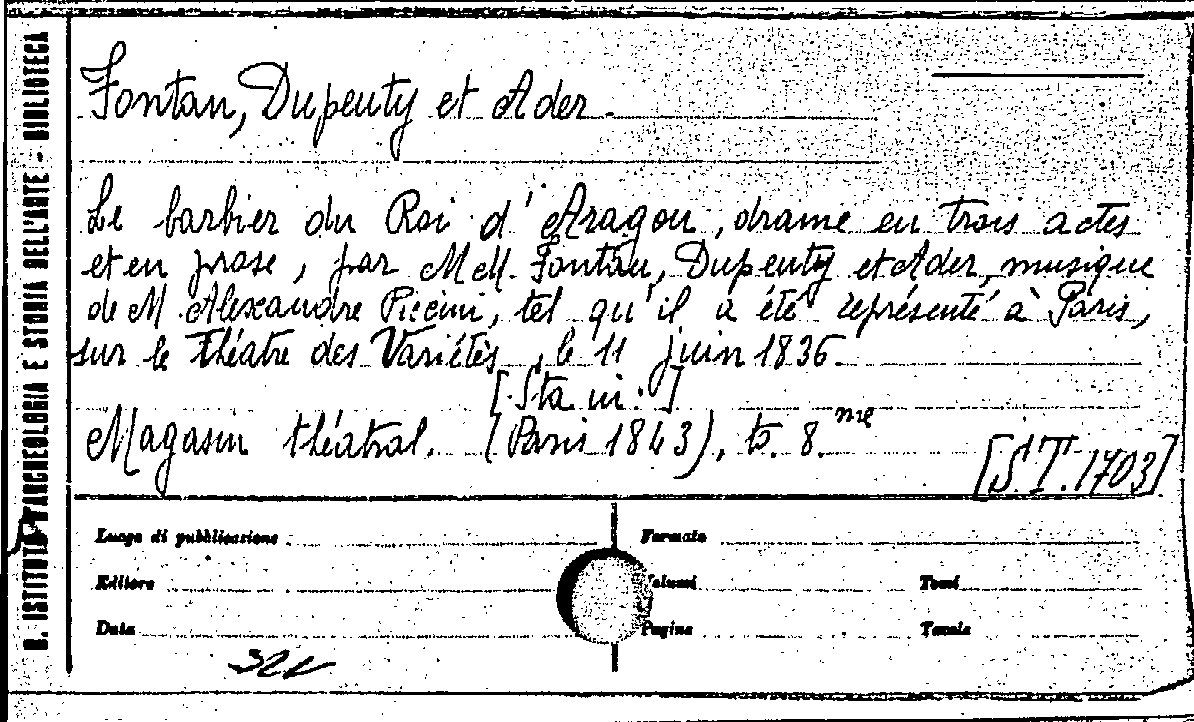 R. ISTITUTO D'ARCHEOLOGIA E STORIA DELL'ARTE - BIBLIOTECA
Fontan, Dupeuty et Ader.
Le barbier du Roi d'Aragon, drame en trois actes
et en prose, par MM. Fontan, Dupeuty et Ader, musique
de M Alexandre Piccini, tel qu'il a été représenté à Paris,
sur le théatre des Variétès, le 11 juin 1836.
[Sta in:]
Magasin théatral. (Paris 1843), to. 8.me
[S.T. 1703]
Luogo di pubblicazione
Formato
Editore
Volumi
Tomi
Data
Pagine
Tavole